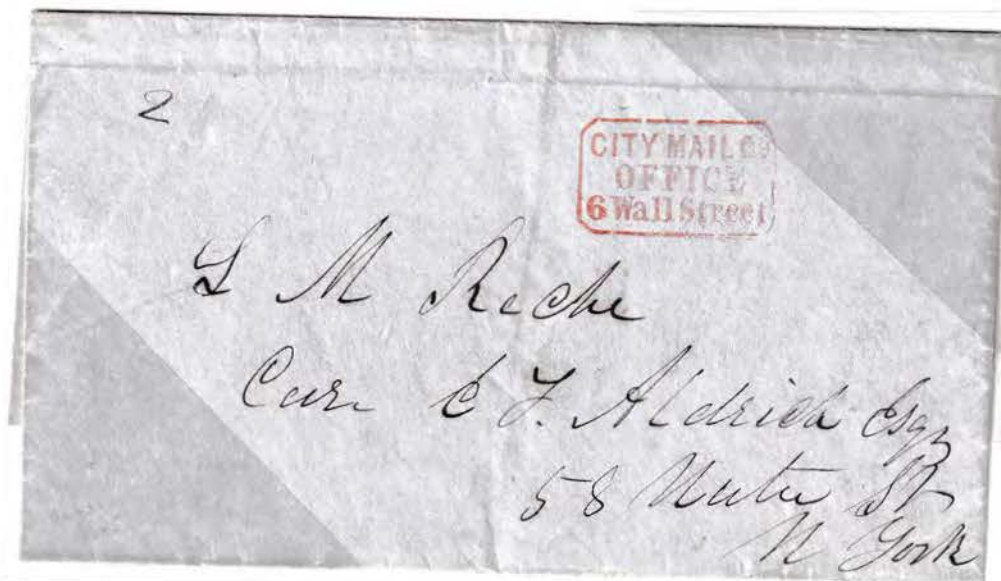 2
CITY MAIL Co
OFFICE
6 Wall Street
L M Reche
Care E F. Aldrich Esqr
58 Water St
N York